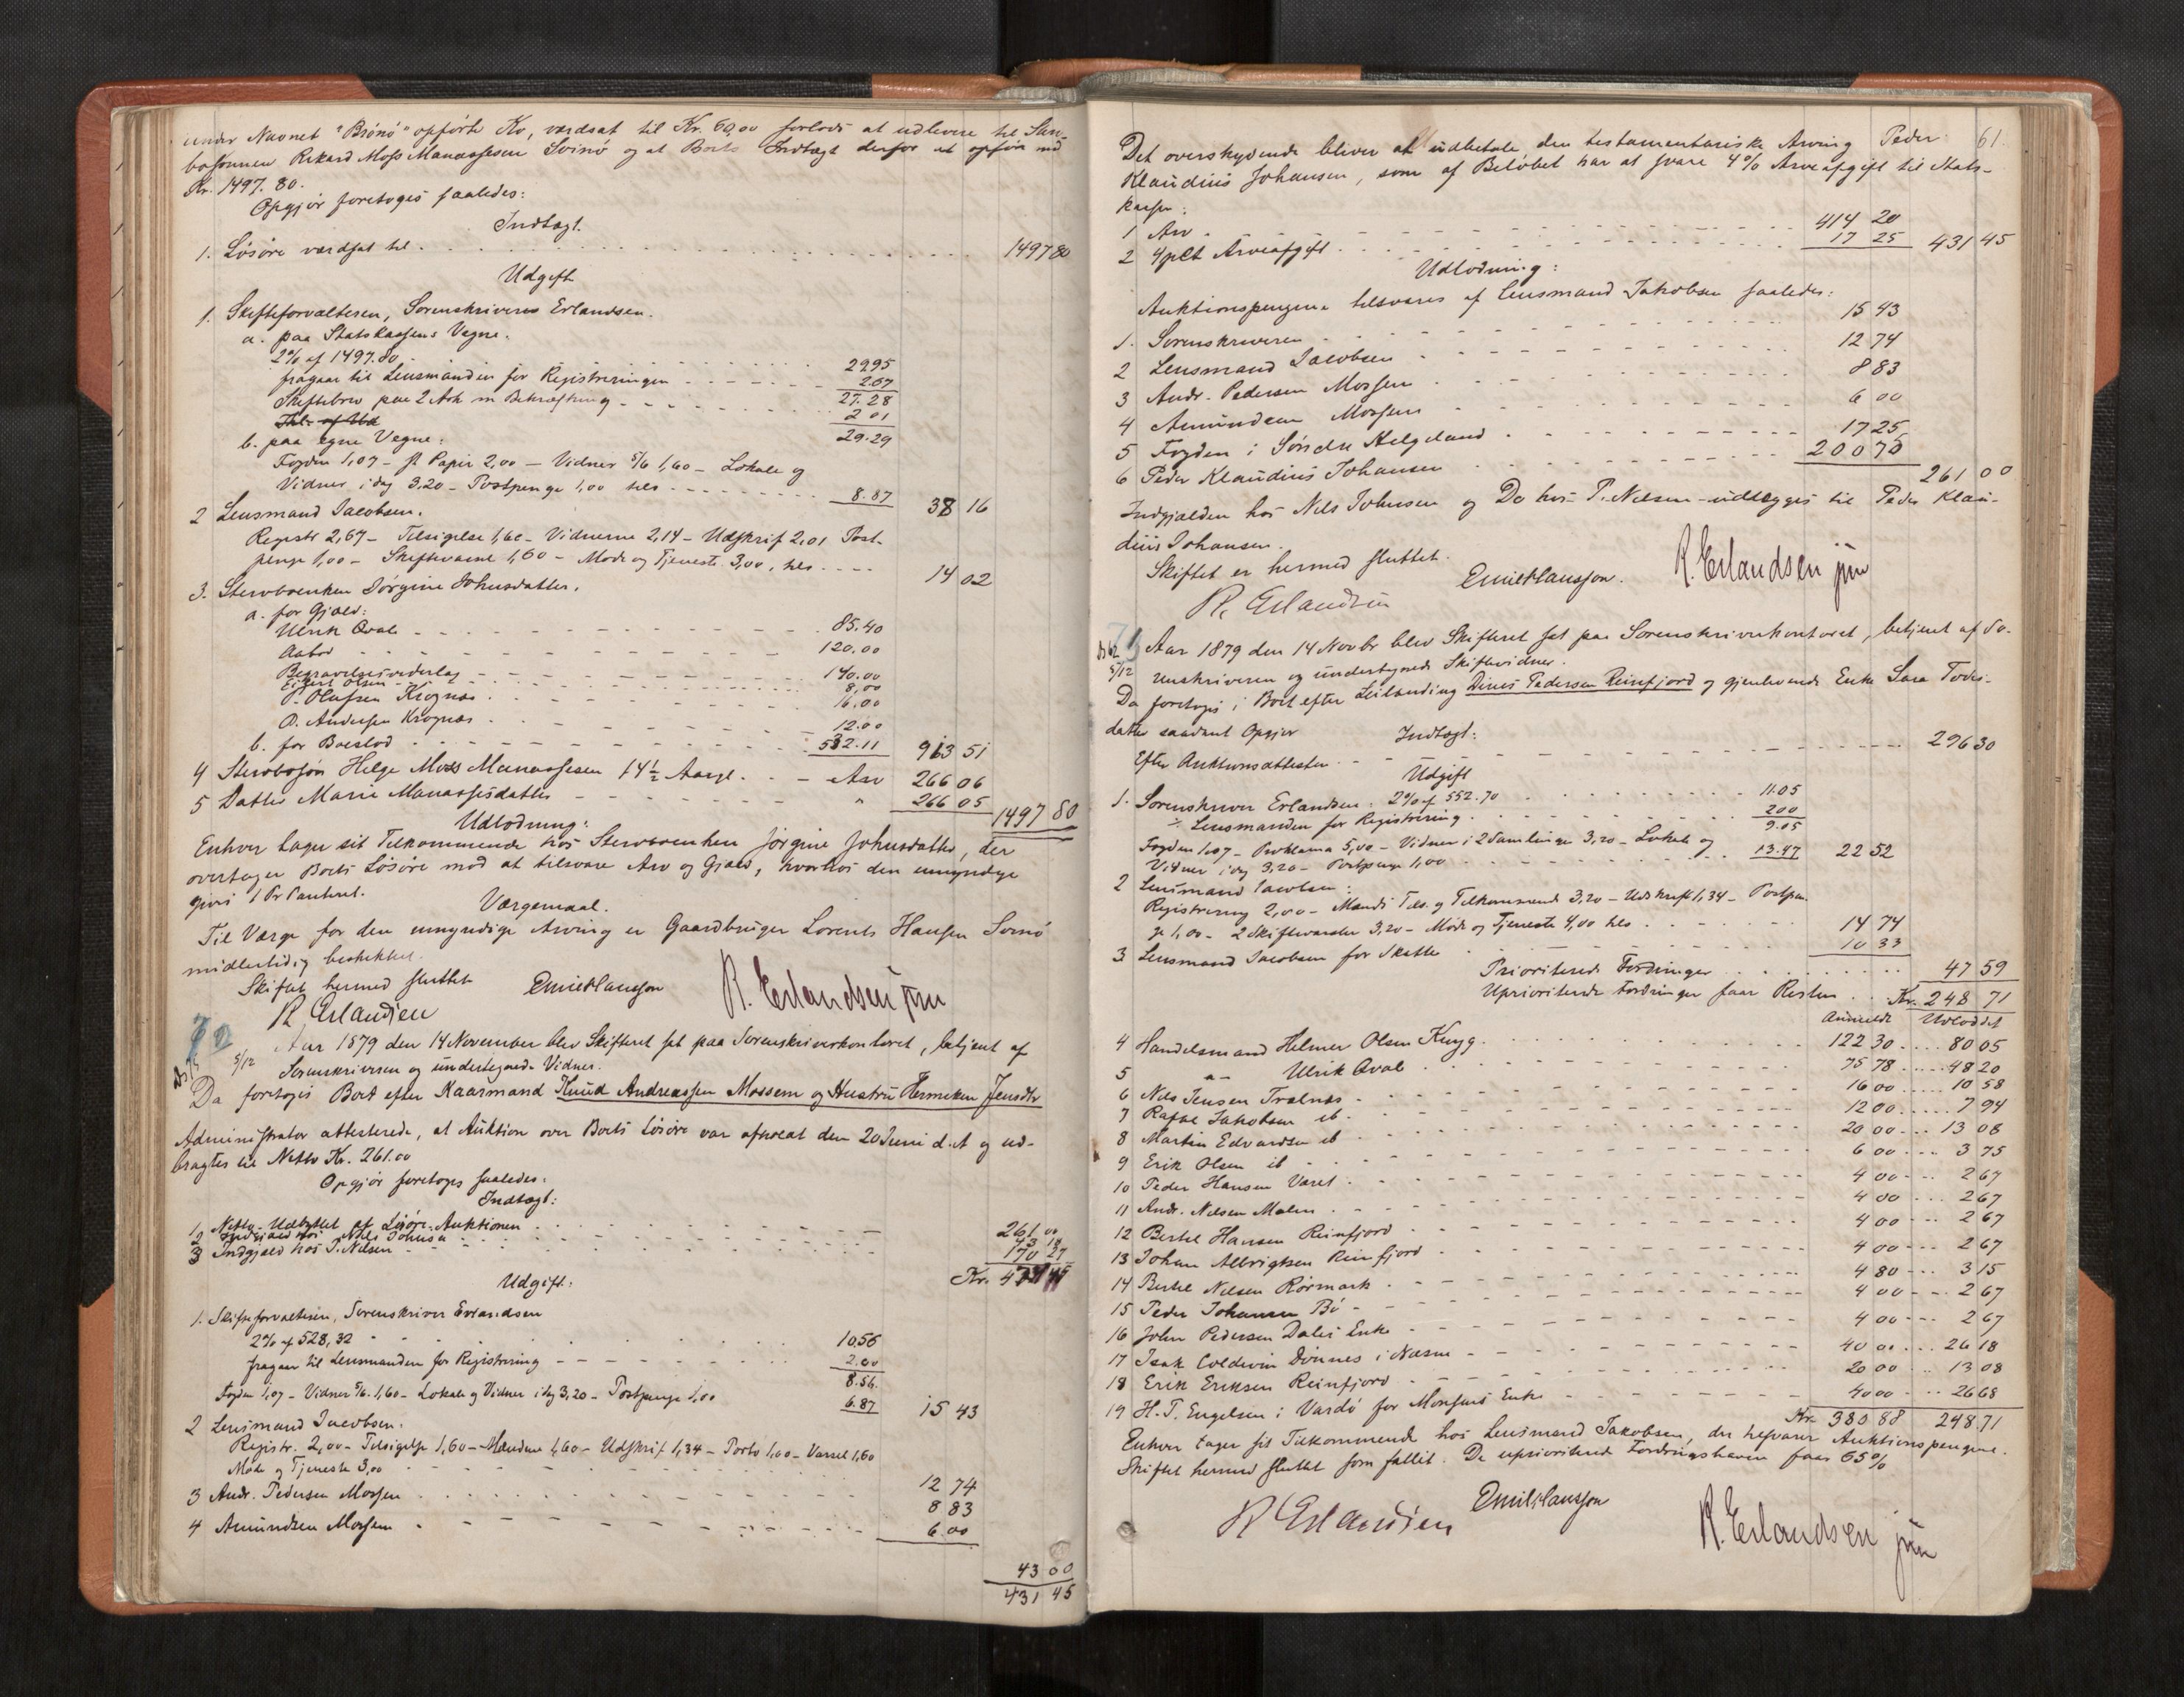 under Navnet "Brönö" opförte Ko, værdsat til Kr. 60,00 forlods at udlevere til Stervbosønnen Rikard Moss Manassesen Svinö og at Boets Indtægt derfor at opføre med
Kr. 1497.80.
Opgjör foretoges saaledes:
Indtægt.
1. Lösöre værdsat til 1497 80
Udgift
1. Skifteforvalteren, Sorenskriveren Erlandsen.
a. paa Statskassens Vegne.
2% af 1497.80 29 95
fragaar til Lensmanden for Registreringen 2.67
27.28
Skiftebrev paa 2 Ark m Bekræftning 2 01
29.29
b. paa egne Vegne:
Fogden 1,07 – st Papir 2,00 – Vidner 5/6 1,60 – Lokale og
Vidner idag 3,20 – Postpenge 1,00 tils 8.87 38 16
2 Lensmand Jacobsen.
Registr 2,67 – Tilsigelse 1,60 – Vidnerne 2,14 – Udskrift 2,01 Post-
penge 1,00 – Skiftevarsel 1,60 – Møde og Tjeneste 3,00, tils 14 02
3. Stervboenken Jörgine Johnsdatter.
a. for Gjæld:
Ulrik Qvale 85.40
Aabod 120.00
Begravelsesvederlag 140.00
Eilert Olsen 8,00
P. Olufsen Krognæs 16,00
P. Andersen Krognæs 12.00
b. for Boeslod 532.11 913 51
4 Stervbosøn Helge Moss Manassesen 14½ Aargl. – Arv 266 06
5 Datter Marie Manassesdatter " 266 05 1497 80
Udlodning:
Enhver tager sit Tilkommende hos Stervboenken Jörgine Johnsdatter, der
overtager Boets Lösöre mod at tilsvare Arv og Gjæld, hvorhos den umyndige
gives 1 Pr Panteret.
Værgemaal.
Til Værge for den umyndige Arving er Gaardbruger Lorents Hansen Svinö
midlertidig beskikket.
Skiftet hermed sluttet
R Erlandsen Emil Hansson R. Erlandsen jun
72
5/12 Aar 1879 den 14 November blev Skifteret sat paa Sorenskriverkontoret, betjent af
Sorenskriveren og undertegnede Vidner.
Da foretoges Boet efter Kaarmand Knud Andreassen Mossem og Hustru Henriken Jensdtr
Administrator attesterede, at Auktion over Boets Lösöre var afholdt den 20 Juni d.A og ud-
bragtes til Netto Kr. 261.00
Opgjör foretoges saaledes:
Indtægt:
1 Netto-Udbyttet af Lösöre-Auktionen 261 00
2 Indgjæld hos Nils Johnsen 43 18
3 Indgjæld hos P. Nilsen 170 27
Kr. 474 45
Udgift:
1. Skifteforvalteren, Sorenskriver Erlandsen
2% af 528,32 10,56
fragaar til Lensmanden for Registrering 2.00
8.56.
Fogden 1,07 – Vidner 5/6. 1,60 – Lokale og Vidner idag 3,20 – Postpenge 1,00 6.87 15 43
2 Lensmand Jacobsen.
Registr. 2,00 – Tilsigelse 1,60 – Mændene 1,60 – Udskrift 1,34 – Porto 1,00 – Varsel 1,60
Møde og Tjeneste 3,00 12 74
3 Andr. Pedersen Mossem 8 83
4 Amundsen Mossem 6.00
43 00
431 45
61.
Det overskydende bliver at udbetale den testamentariske Arving Peder
Klaudius Johansen, som af Belöbet har at svare 4% Arveafgift til Stats-
kassen:
1 Arv 414 20
2 4pCt Arveafgift 17 25 431 45
Udlodning:
Auktionspengene tilsvares af Lensmand Jakobsen saaledes:
1. Sorenskriveren 15 43
2 Lensmand Jacobsen 12 74
3 Andr. Pedersen Mossem 8 83
4 Amundsen Mossem 6 00
5 Fogden i Söndre Helgeland 17 25
6 Peder Klaudius Johansen 200 75 261 00
Indgjælden hos Nils Johnsen og Do hos P. Nilsen udlægges til Peder Klau-
dius Johansen.
Skiftet er hermed sluttet.
R. Erlandsen Emil Hansson. R. Erlandsen jun
5/12 Aar 1879 den 14 Novbr blev Skifteret sat paa Sorenskriverkontoret, betjent af So-
renskriveren og undertegnede Skiftevidner.
Da foretoges i Boet efter Leilænding Dines Pedersen Reinfjord og gjenlevende Enke Sara Todes-
datter saadant Opgjör
Indtægt:
Efter Auktionsattesten 296 30
Udgift
1. Sorenskriver Erlandsen: 2% af 552.70 11.05
÷ Lensmanden for Registrering 2.00
9.05
Fogden 1,07 – Proklama 5,00 – Vidner i 2 Samlinger 3,20 – Lokale og
Vidner idag 3,20 – Postpenge 1,00 13.47 22 52
2 Lensmand Jacobsen:
Registrering 2,00 – Mænds Tils. og Tilkommende 3,20 – Udskrift 1,34 – Postpen-
ge 1,00 – 2 Skiftevarsler 3,20 – Møde og Tjeneste 4,00 tils 14 74
3 Lensmand Jacobsen for Skatter 10 33
Prioriterede Fordringer 47 59
Uprioriterede Fordringer faar Resten Kr. 248 71
Anmeldt Udloddet
4 Handelsmand Helmer Olsen Kvig 122 30 80 05
5 " Ulrik Qvale 75 78 48 20
6 Nils Jensen Trælnes 16 00 10 58
7 Rafael Jakobsen ib 12 00 7 94
8 Martin Edvardsen ib 20 00 13 08
9 Erik Olsen ib 6 00 3 75
10 Peder Hansen Været 4 00 2 67
11 Andr. Nilsen Malm 4 00 2 67
12 Bertel Hansen Reinfjord 4 00 2 67
13 Johan Albrigtsen Reinfjord 4 00 2 67
14 Bertel Nilsen Rörmark 4 80 3 15
15 Peder Johansen Bö 4 00 2 67
16 John Pedersen Dalens Enke 4 00 2 67
17 Isak Coldevin Dönnes i Næsne 40 00 26 18
18 Erik Eriksen Reinfjord 20 00 13 08
19 H. T. Engelsen i Vardö for Monsens Enke 40 00 26 68
Kr. 380 88 248 71
Enhver tager sit Tilkommende hos Lensmand Jakobsen, der hefvarer Auktionspengene.
Skiftet hermed sluttet som fallit. De uprioriterede Fordringshavere faar 65%
R Erlandsen Emil Hansson R. Erlandsen jun